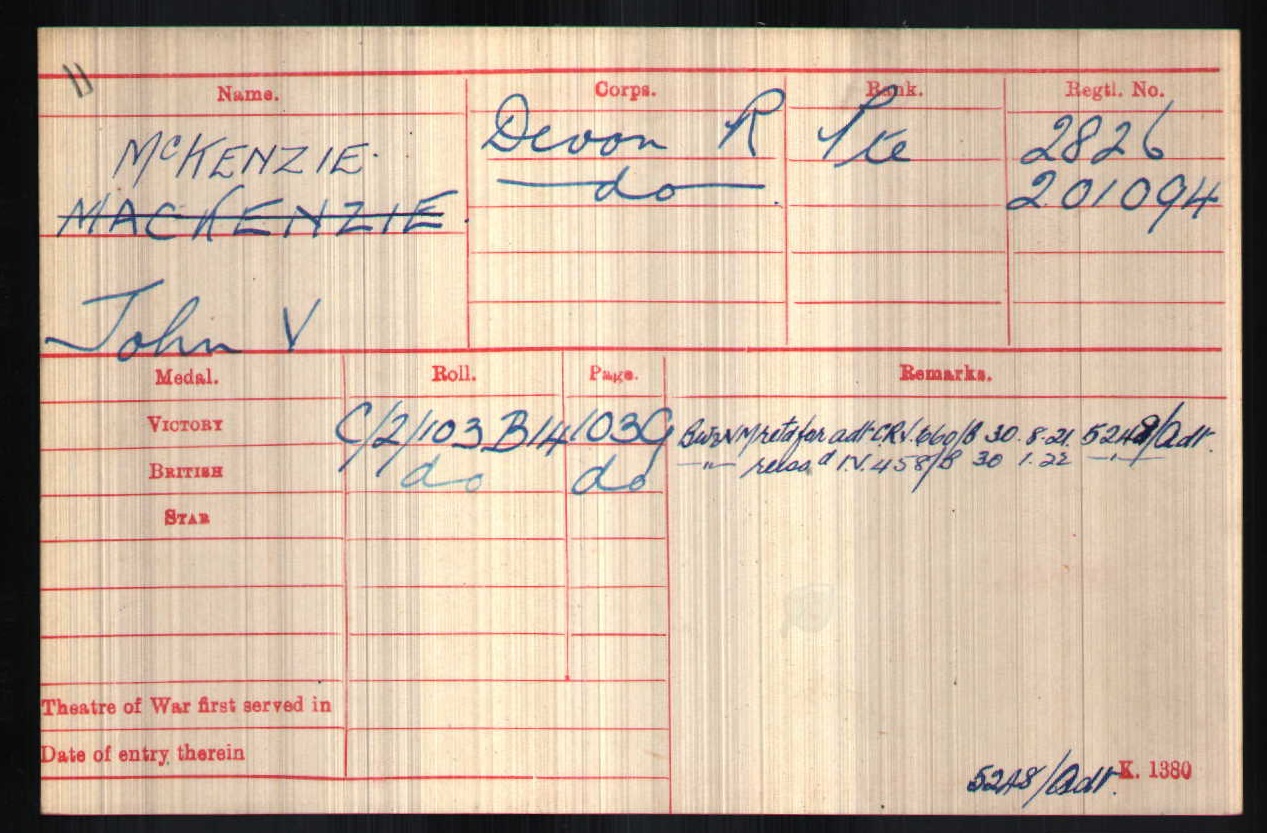 Name. Corps. Rank. Regtl. No.
McKENZIE. Devon R Pte 2826
MACKENZIE. do 201094
John V
Medal. Roll. Page. Remarks.
VICTORY C/2/103 B14 103G BW&VM retd for adt CRV. 660/B 30.8.21. 5248/Adt.
BRITISH do do " reissd IV. 458/B 30 1.22 "
STAR
Theatre of War first served in
Date of entry therein
5248/Adt. K. 1380